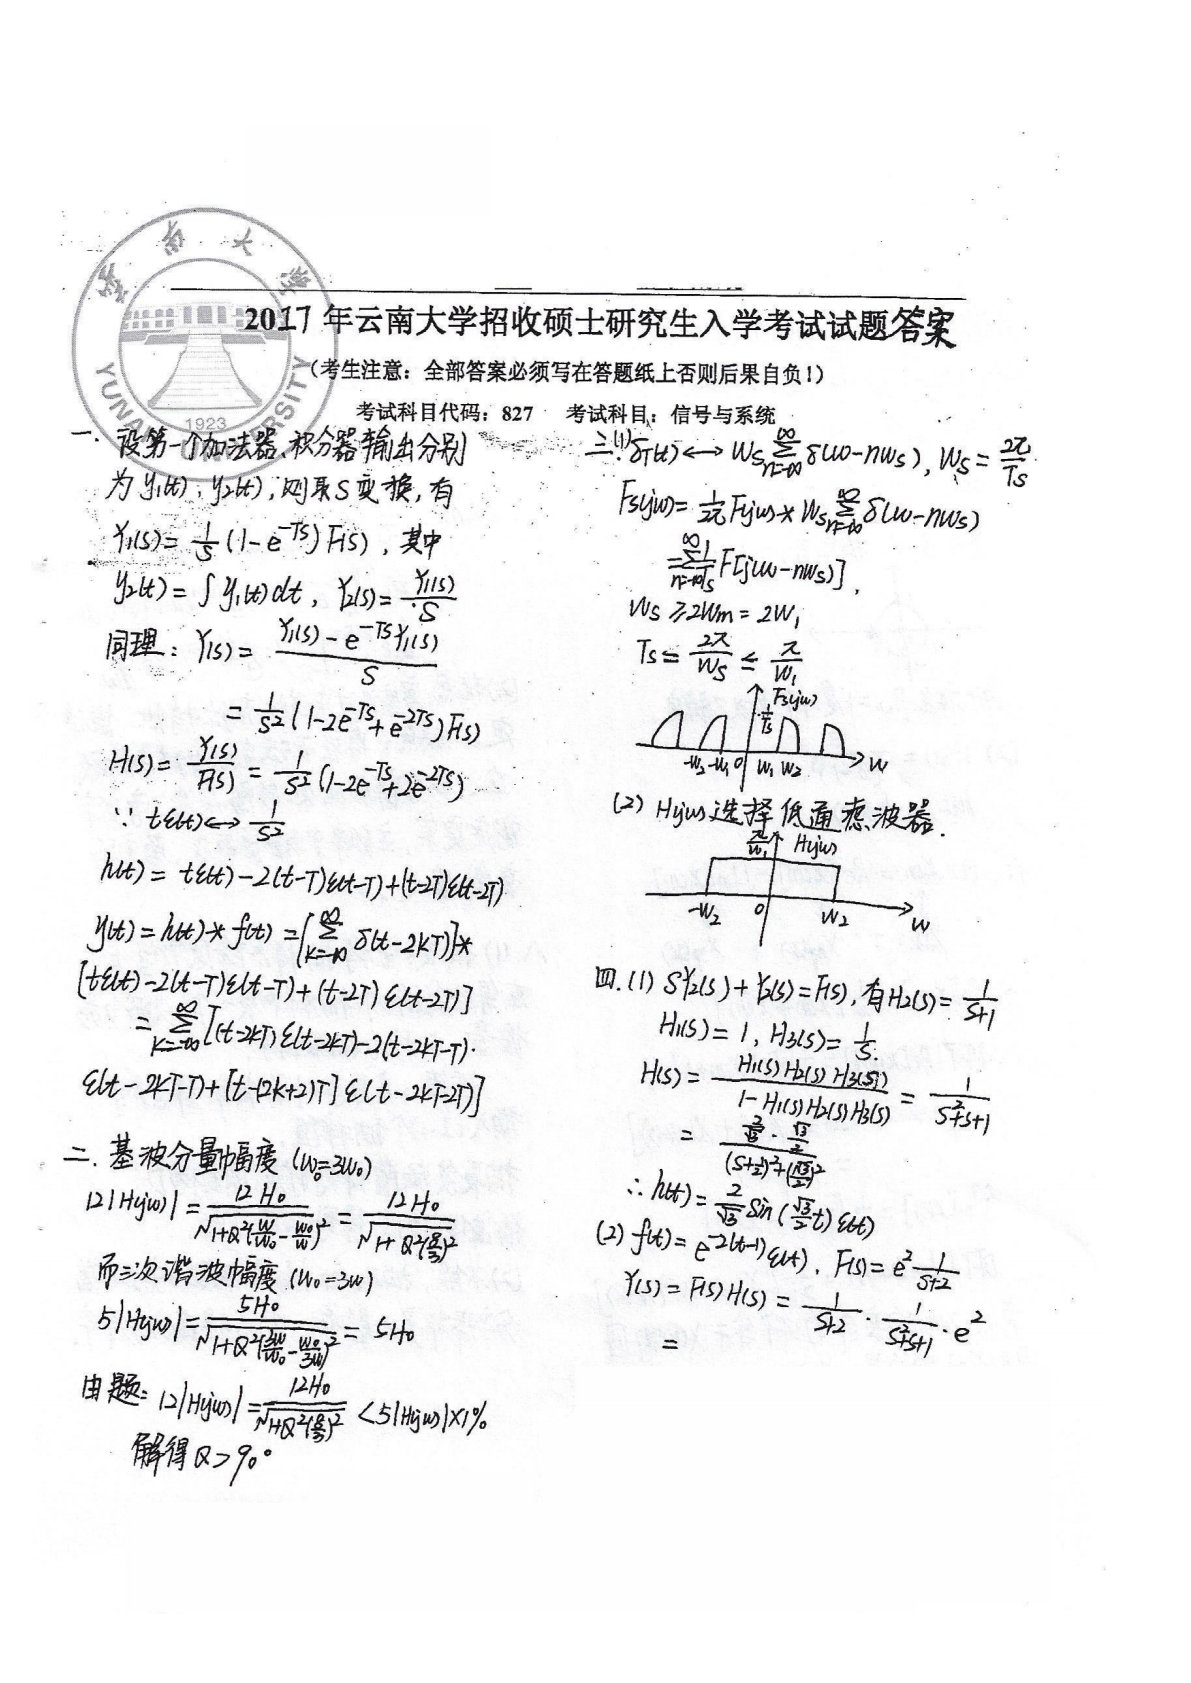 云南大学
YUNNAN UNIVERSITY
1923
2017年云南大学招收硕士研究生入学考试试题答案
（考生注意：全部答案必须写在答题纸上否则后果自负！）
考试科目代码：827 考试科目：信号与系统
一. 设第一个加法器、积分器输出分别
为 y₁(t)、y₂(t), 则取S变换, 有
Y₁(s) = 1/s (1-e^{-Ts}) F(s), 其中
y₂(t) = ∫y₁(t)dt, Y₂(s) = Y₁(s)/s
同理: Y(s) = (Y₁(s) - e^{-Ts}Y₁(s))/s
= 1/s² (1-2e^{-Ts}+e^{-2Ts})F(s)
H(s) = Y(s)/F(s) = 1/s² (1-2e^{-Ts}+2e^{-2Ts})
∵ tε(t) ↔ 1/s²
h(t) = tε(t)-2(t-T)ε(t-T)+(t-2T)ε(t-2T)
y(t) = h(t)*f(t) = [∑_{k=-∞}^{∞} δ(t-2kT)]*
[tε(t)-2(t-T)ε(t-T)+(t-2T)ε(t-2T)]
= ∑_{k=-∞}^{∞} [(t-2kT)ε(t-2kT)-2(t-2kT-T)·
ε(t-2kT-T)+[t-(2k+2)T]ε(t-2kT-2T)]
二. 基波分量幅度 (w₀=3w₀)
12|H(jw)| = 12H₀/√(1+Q²(w/w₀-w₀/w)²) = 12H₀/√(1+Q²(8/3)²)
而三次谐波幅度 (w₀=3w)
5|H(jw)| = 5H₀/√(1+Q²(3w/w₀-w₀/3w)²) = 5H₀
由题: 12|H(jw)| = 12H₀/√(1+Q²(8/3)²) < 5|H(jw)|×1%
解得Q>90。
三.(1) δT(t) ↔ Ws∑_{n=-∞}^{∞} δ(w-nws), Ws = 2π/Ts
Fs(jw) = 1/2π F(jw) * Ws∑_{n=-∞}^{∞} δ(w-nws)
= ∑_{n=-∞}^{∞} 1/Ts F[j(w-nws)],
Ws ≥ 2Wm = 2W₁
Ts = 2π/Ws ≤ π/W₁
Fs(jw)
1/Ts
-W₂ -W₁ 0 W₁ W₂ W
(2) H(jw)选择低通滤波器.
π/W₁ H(jw)
-W₂ 0 W₂ W
四.(1) SY₂(s)+Y₂(s)=F(s), 有H₂(s) = 1/(s+1)
H₁(s) = 1, H₃(s) = 1/s.
H(s) = H₁(s)H₂(s)H₃(s)/(1-H₁(s)H₂(s)H₃(s)) = 1/(s²+s+1)
= (2/√3 · √3/2)/((s+1/2)²+(√3/2)²)
∴ h(t) = 2/√3 sin(√3/2 t)ε(t)
(2) f(t) = e^{-2(t-1)}ε(t), F(s) = e² 1/(s+2)
Y(s) = F(s)H(s) = 1/(s+2) · 1/(s²+s+1) · e²
=